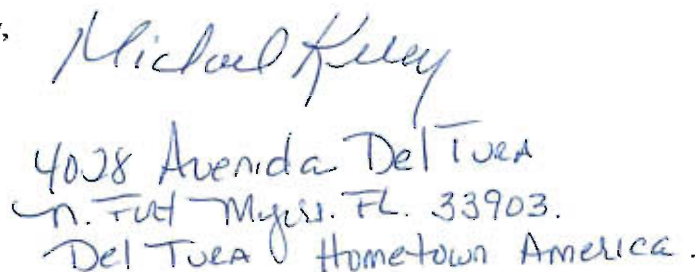 Michael Kelley
4028 Avenida Del Tura
N. Fort Myers. FL. 33903.
Del Tura Hometown America.